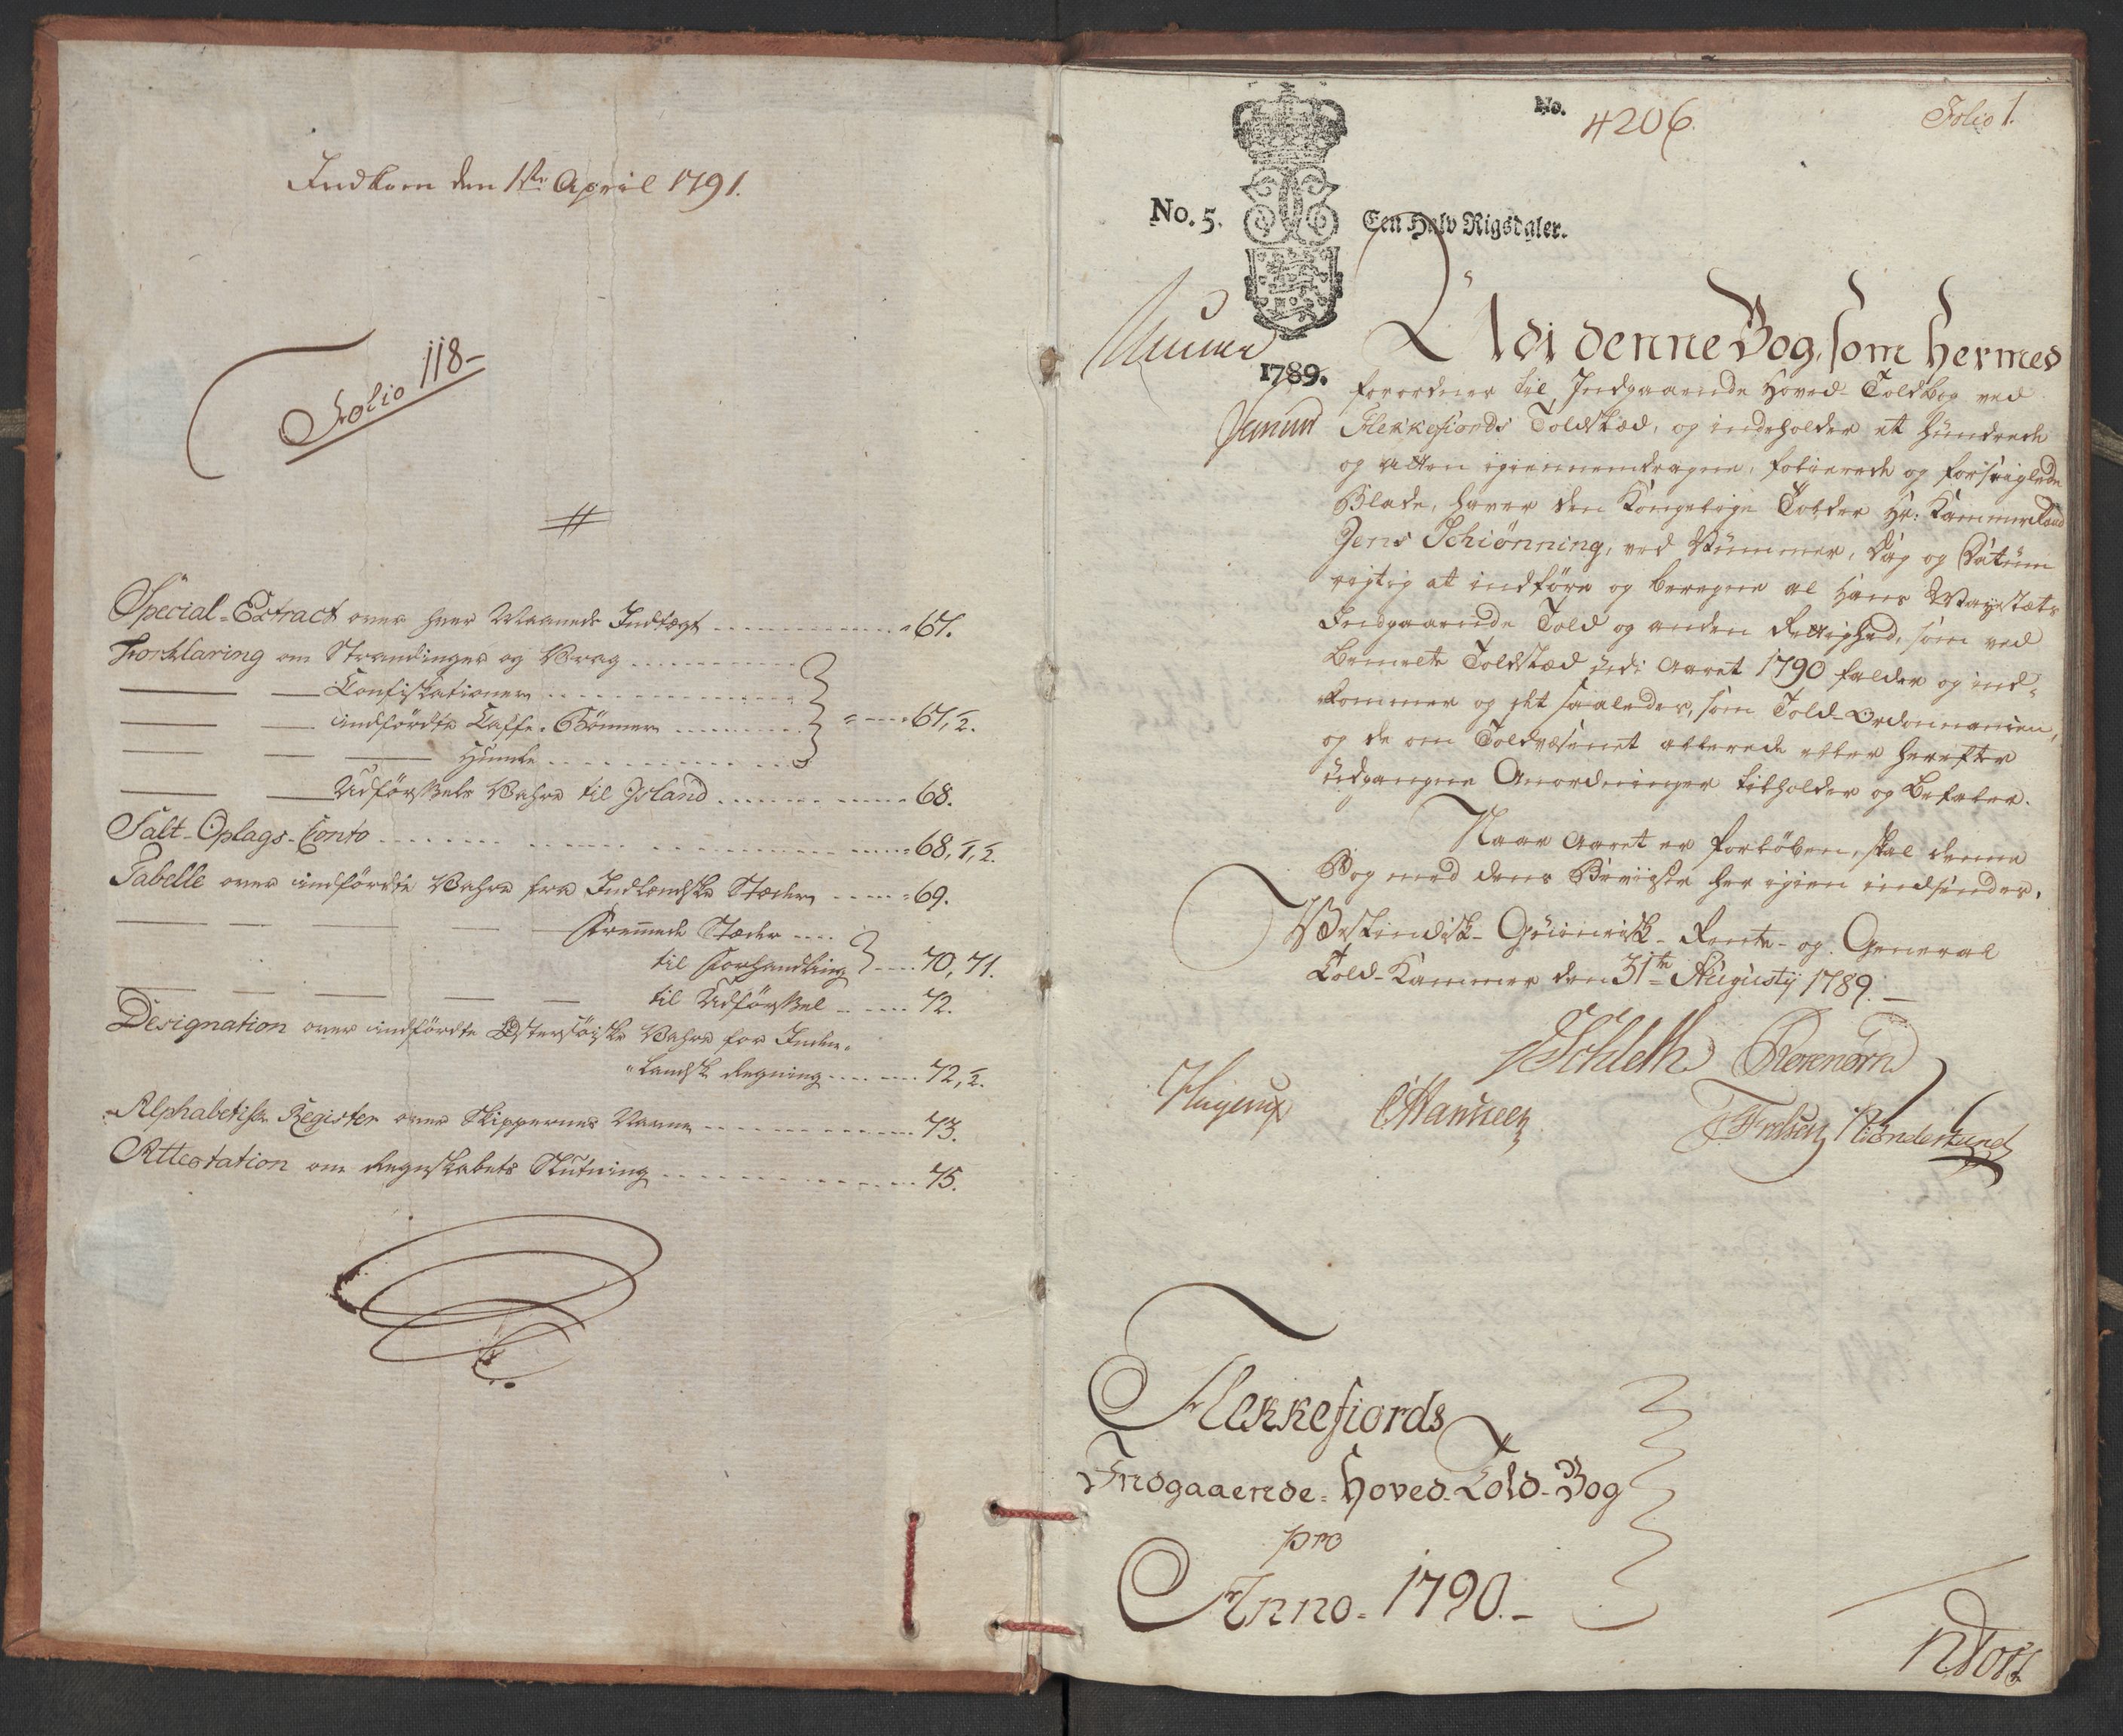 Indkom den 1ste April 1791.
Folio 118-
Special-Extract over hver Maaneds Indtægt - - - 67.
Forklaring om Strandinger og Vrag - - -
Confiskationer - - -
indførdte Caffe-Bønner - - - 67, ½.
Humle - - -
Udførsels Vahre til Island - - - 68.
Salt-Oplags-Conto - - - 68, 1, ½.
Tabelle over indførdte Vahre fra Indlandske Stæder - - - 69.
fremmede Stæder - - -
til Forhandling - - - 70, 71.
til Udførsel - - - 72.
Designation over indførdte Østersøiske Vahre for Inden-
landsk Regning - - - 72, ½.
Alphabetisk Register over Skippernes Navne - - - 73.
Attestation om Regnskabets Slutning - - - 75.
No. 4206.
Folio 1.
No. 5.
Een Halv Rigsdaler.
1789.
Udi denne Bog, som hermed
forordnes til Indgaaende Hoved-Toldbog ved
Flekkefiords Toldstæd, og indeholder et hundrede
og atten igiennemdragne, folierede og forseiglede
Blade, haver den Kongelige Tolder Hr. Kammerraad
Jens Schiønning, ved Nummer, Dag og Datum
rigtig at indføre og beregne al Hans Mayestæts
Indgaaende Told og anden Rettighed, som ved
bemelte Toldstæd udi Aaret 1790 falder og ind-
kommer og det saaledes, som Told-Ordonnancen,
og de om Toldvæsenet allerede eller herefter
udgangne Anordninger tilholder og befaler.
Naar Aaret er forløben, skal denne
Bog med dens Beviiser her igien indsendes.
Westindisk-Guineisk-Rente- og General
Told-Kammer den 31te Augusty 1789.-
JSchleth Rosenørn
Hagerup CHansen
Flekkefiords
Indgaaende-Hoved-Told-Bog
pro
Anno-1790.-